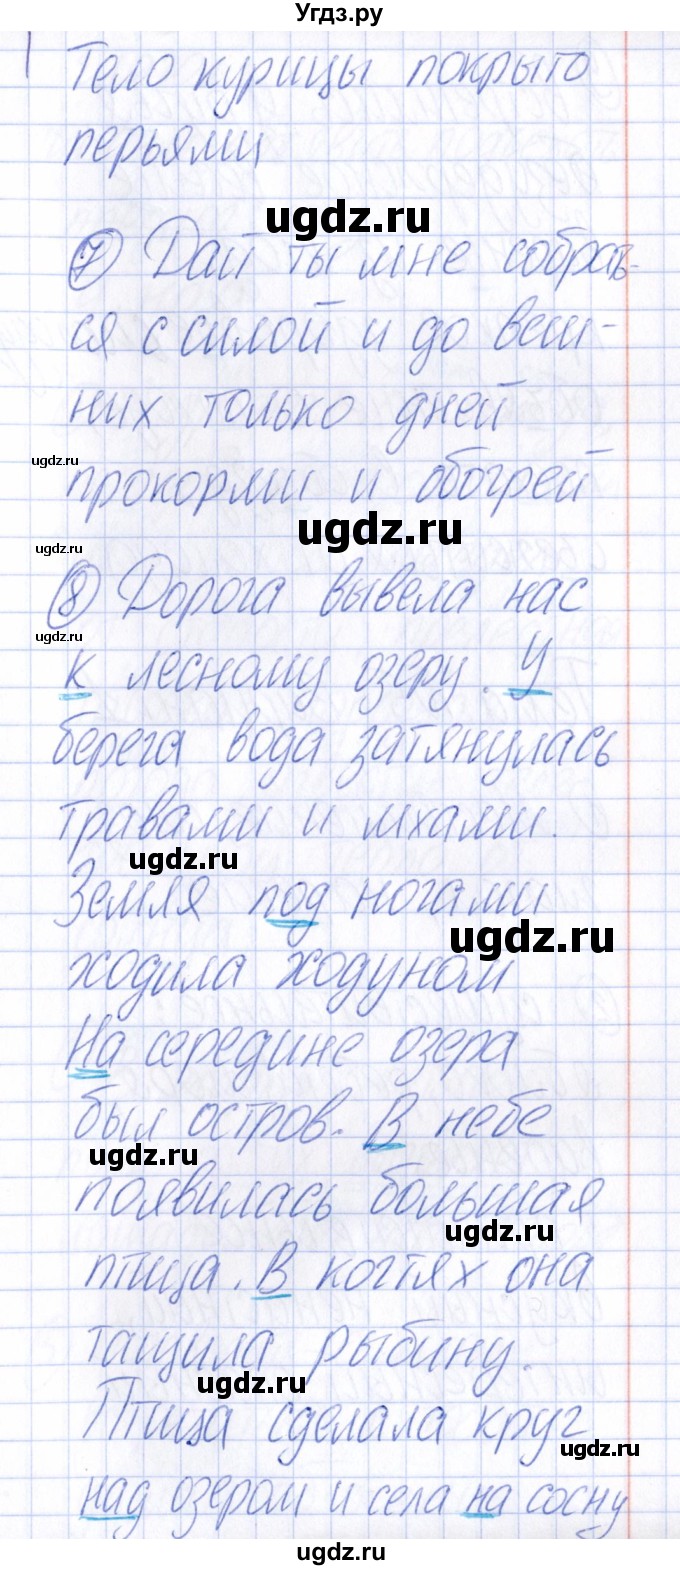 Угдз.ру
Тело курицы покрыто
перьями
ugdz.ru
7 Дай ты мне собрать-
ся с силой и до веш-
них только дней
ugdz.ru
прокорми и обогрей
ugdz.ru
ugdz.ru
8 Дорога вывела нас
ugdz.ru
к лесному озеру. У
берега вода затянулась
травами и мхами.
ugdz.ru
Земля под ногами
ugdz.ru
ходила ходуном
На середине озера
был остров. В небе
ugdz.ru
появилась большая
ugdz.ru
птица. В когтях она
тащила рыбину.
ugdz.ru
Птица сделала круг
ugdz.ru
над озером и села на сосну
ugdz.ru